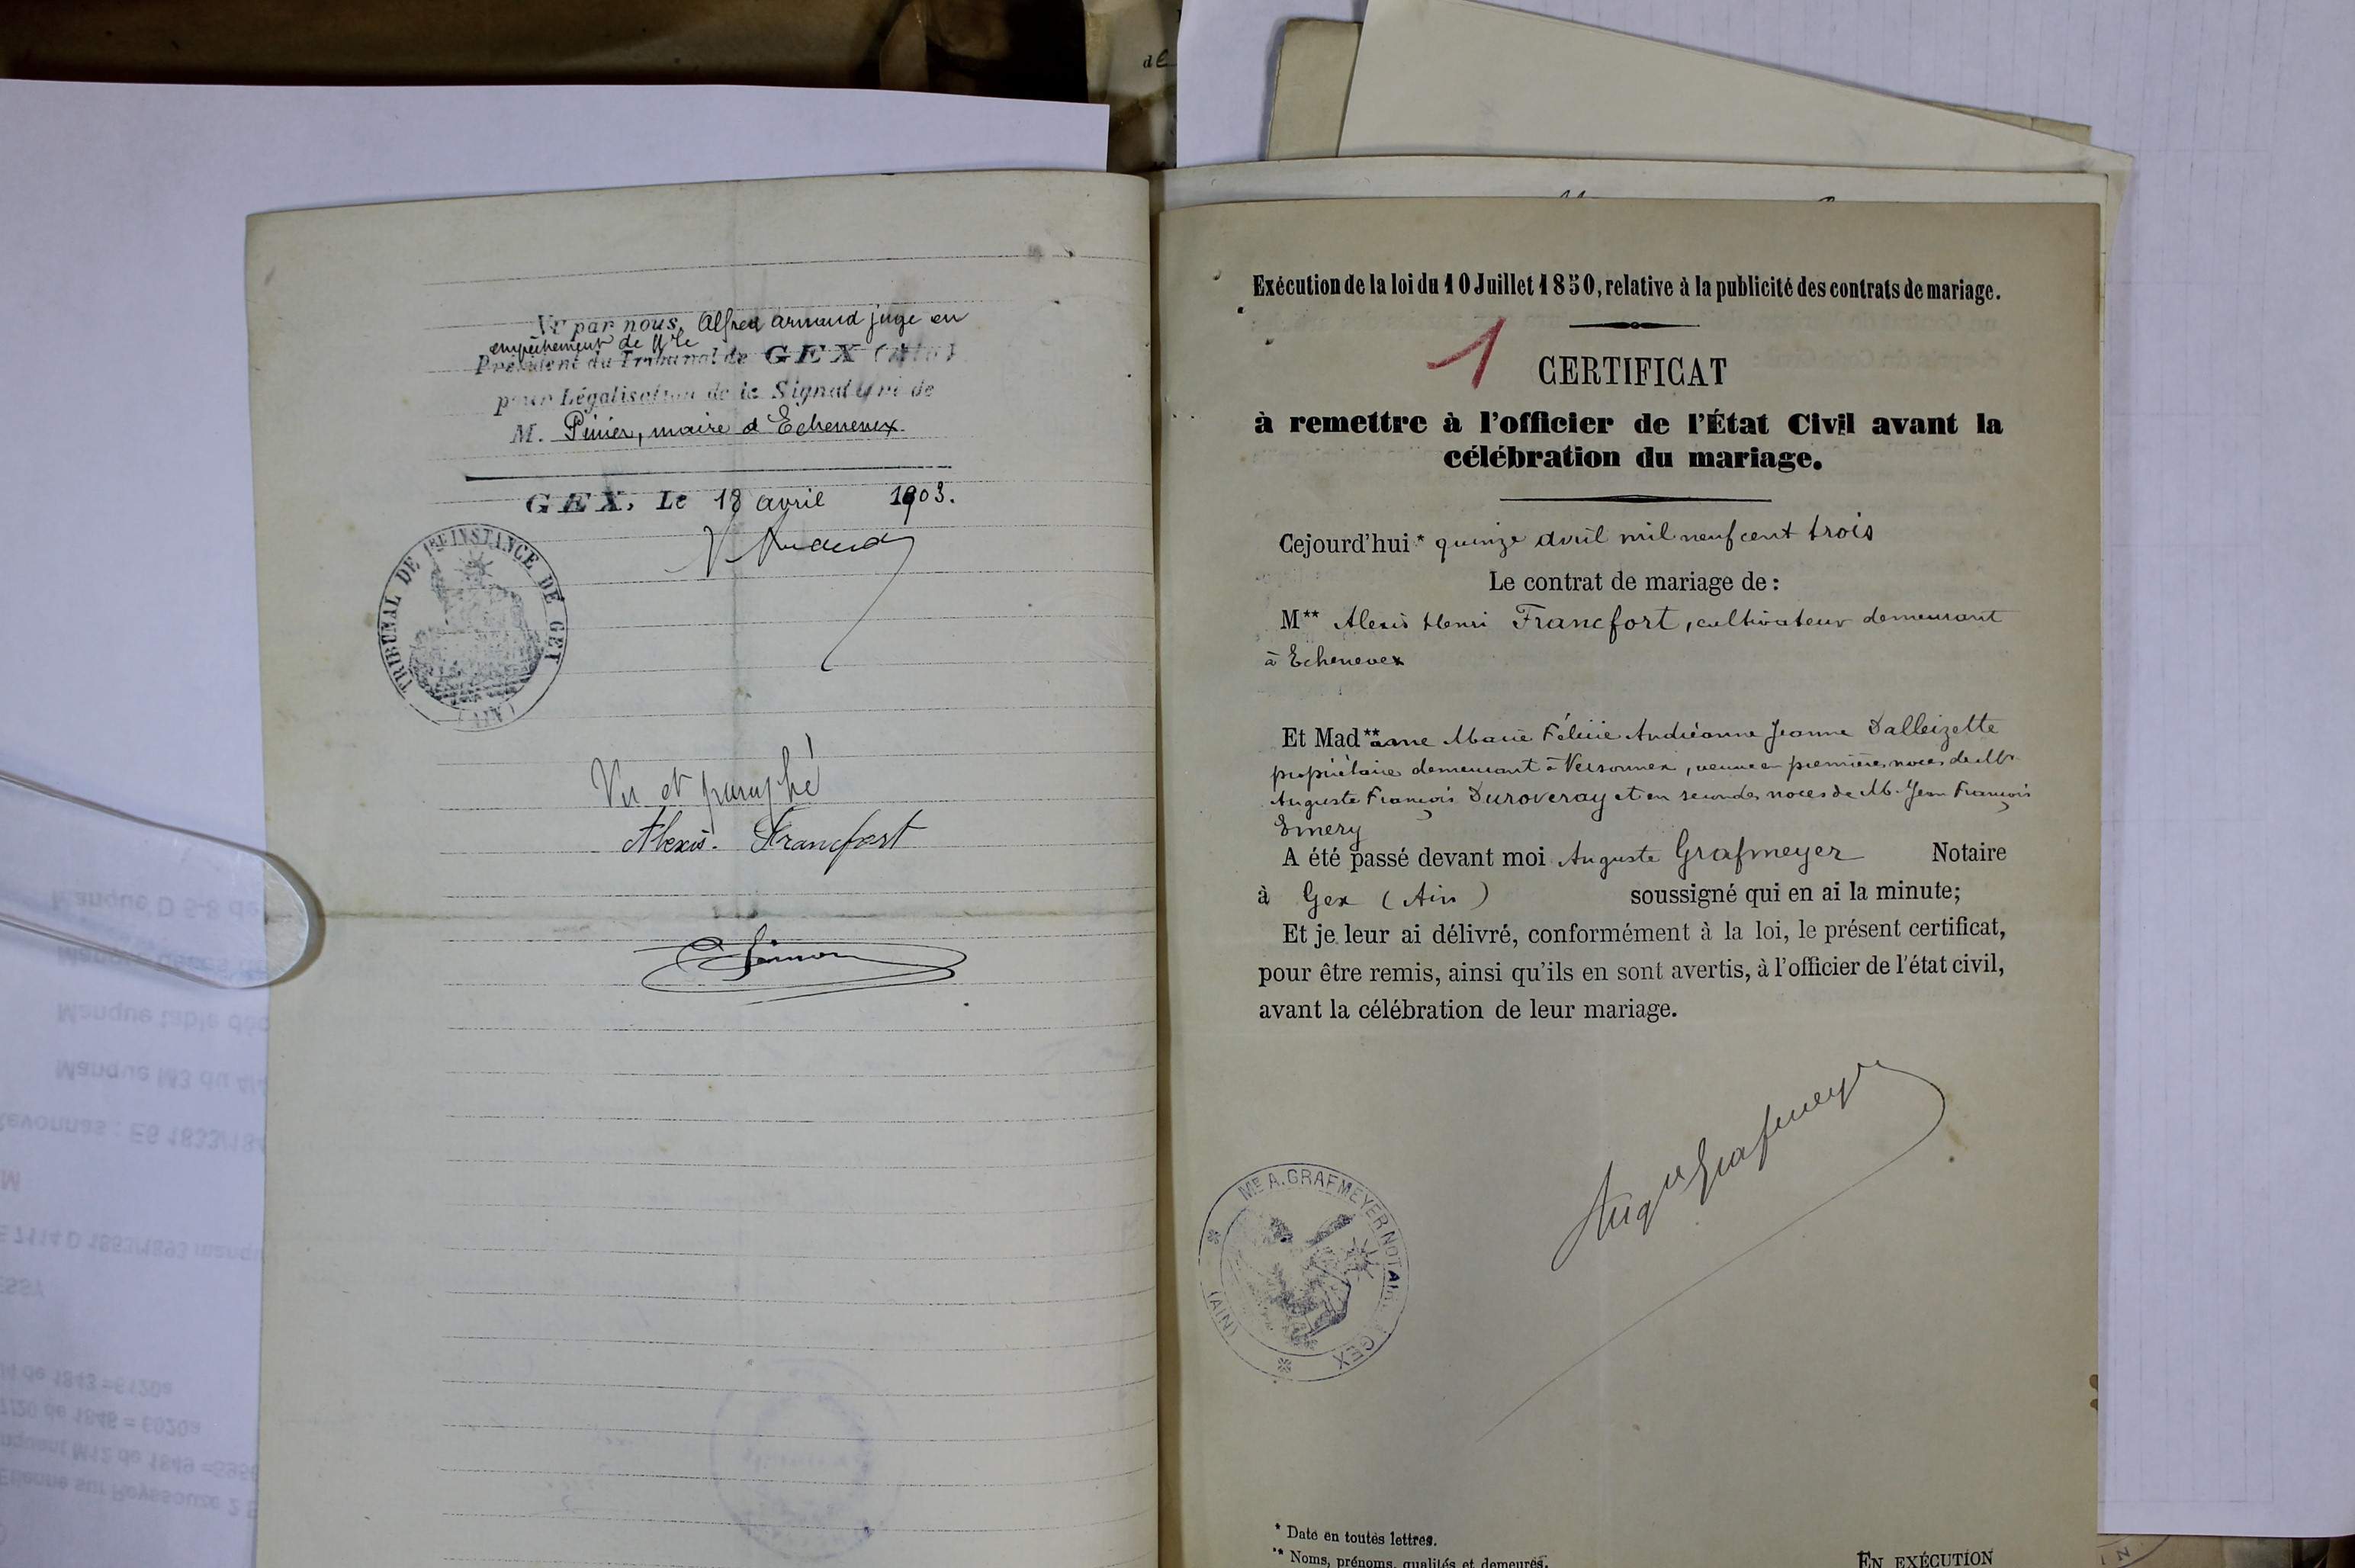 Vu par nous, Alfred Armand juge en
empêchement de Mr le
Président du Tribunal de GEX (Ain)
pour Légalisation de la Signature de
M. Pinier, maire d'Echenevex.
GEX, Le 18 avril 1903.
TRIBUNAL DE 1RE INSTANCE DE GEX
(AIN)
Vu et paraphé
Alexis Francfort
Exécution de la loi du 10 Juillet 1850, relative à la publicité des contrats de mariage.
1
CERTIFICAT
à remettre à l'officier de l'État Civil avant la
célébration du mariage.
Cejourd'hui* quinze avril mil neuf cent trois
Le contrat de mariage de :
M** Alexis Henri Francfort, cultivateur demeurant
à Echenevex
Et Mad**ame Marie Félicie Andréanne Jeanne Dalleizette
propriétaire demeurant à Versonnex, veuve en premières noces de Mr
Auguste François Duroveray et en secondes noces de M. Jean François
Emery
A été passé devant moi Auguste Grafmeyer Notaire
à Gex (Ain) soussigné qui en ai la minute;
Et je leur ai délivré, conformément à la loi, le présent certificat,
pour être remis, ainsi qu'ils en sont avertis, à l'officier de l'état civil,
avant la célébration de leur mariage.
Augte Grafmeyer
ME A. GRAFMEYER NOTAIRE GEX
(AIN)
* Date en toutes lettres.
** Noms, prénoms, qualités et demeures.
EN EXÉCUTION